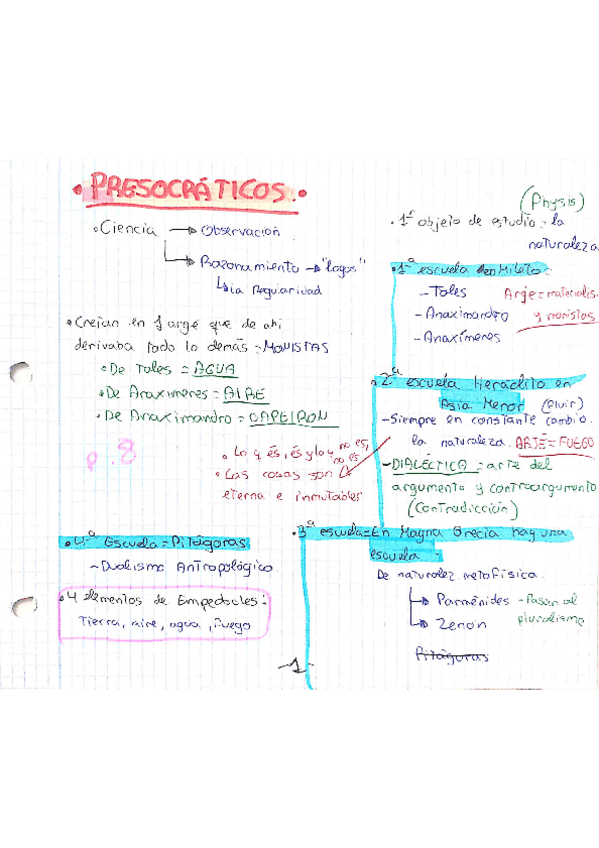 • PRESOCRÁTICOS.
• Ciencia → Observación
↳ Razonamiento → "logos"
↳ La Regularidad
• Creían en 1 argé que de ahí
derivaba todo lo demás = MONISTAS
• De Tales = AGUA
• De Anaxímenes = AIRE
• De Anaximandro = OAPEIRON
P. 8
• Lo q és, és y lo q no es,
no es
• Las cosas son
eterna e inmutables
• 4ª Escuela = Pitágoras
- Dualismo Antropológico
• 4 elementos de Empedocles:
Tierra, aire, agua, fuego
(Physis)
• 1º objeto de estudio: la
naturaleza
• 1ª escuela Mileto
- Tales
- Anaximandro
- Anaxímenes
Arje = materialis.
y monistas
• 2ª escuela Heráclito en
Asia Menor (Fluir)
- Siempre en constante cambio.
la naturaleza. ARJE = FUEGO
- DIALÉCTICA = arte del
argumento y contraargumento
(Contradicción)
• 3ª escuela = En Magna Grecia hay una
escuela -
De naturalez. metafísica.
↳ Parménides - Pasan al
pluralismo
↳ Zenón
Pitágoras
-1-